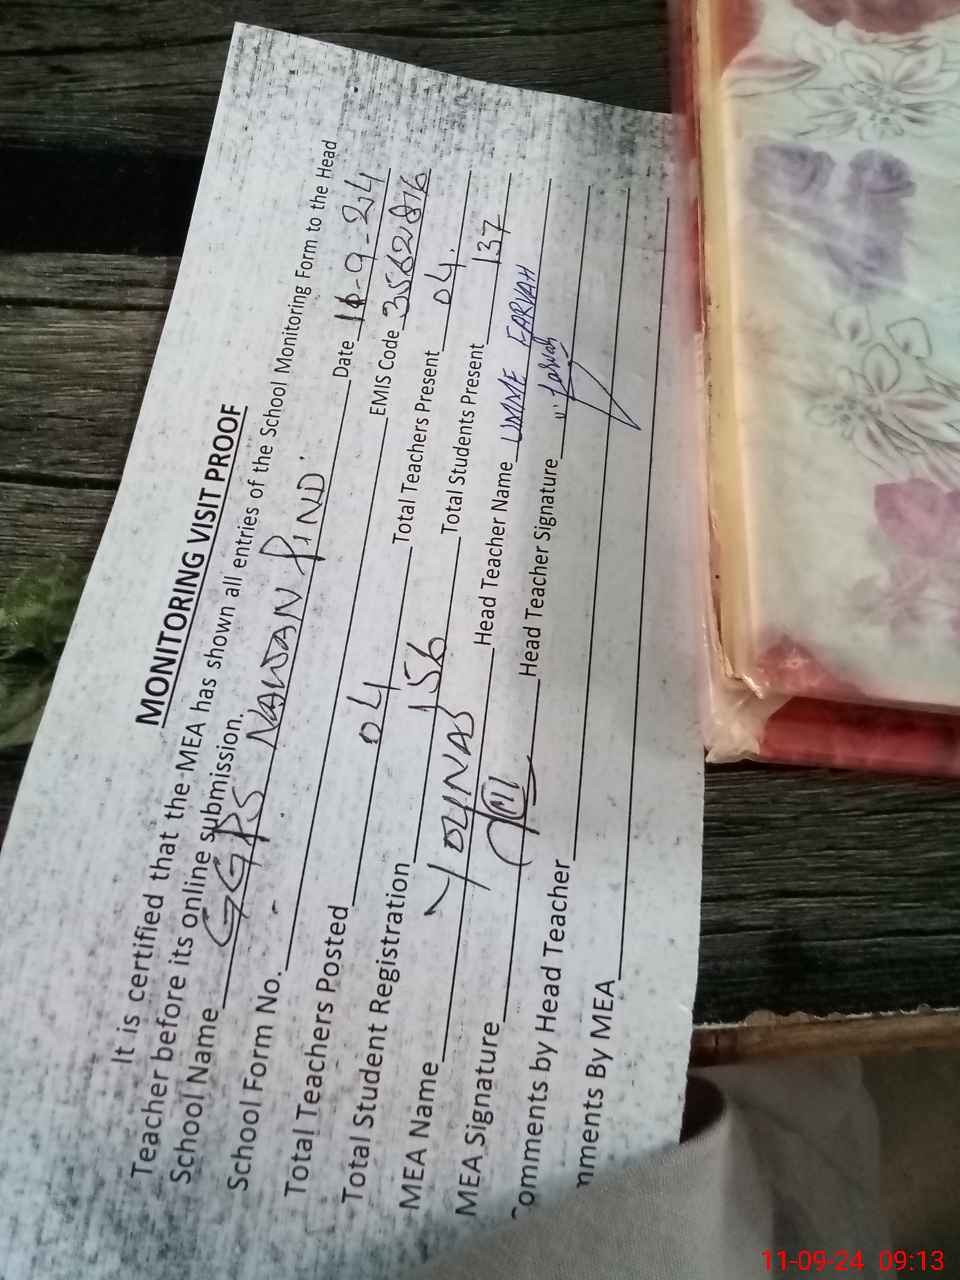 MONITORING VISIT PROOF
It is certified that the MEA has shown all entries of the School Monitoring Form to the Head
Teacher before its online submission.
School Name GGPS NAWAN PIND. Date 11-9-24
School Form No. EMIS Code 35621816
Total Teachers Posted 04 Total Teachers Present 04.
Total Student Registration 156 Total Students Present 137
MEA Name YOUNAS Head Teacher Name UMME FARVAH
MEA Signature Head Teacher Signature u. farvah
Comments by Head Teacher
mments By MEA
11-09-24 09:13